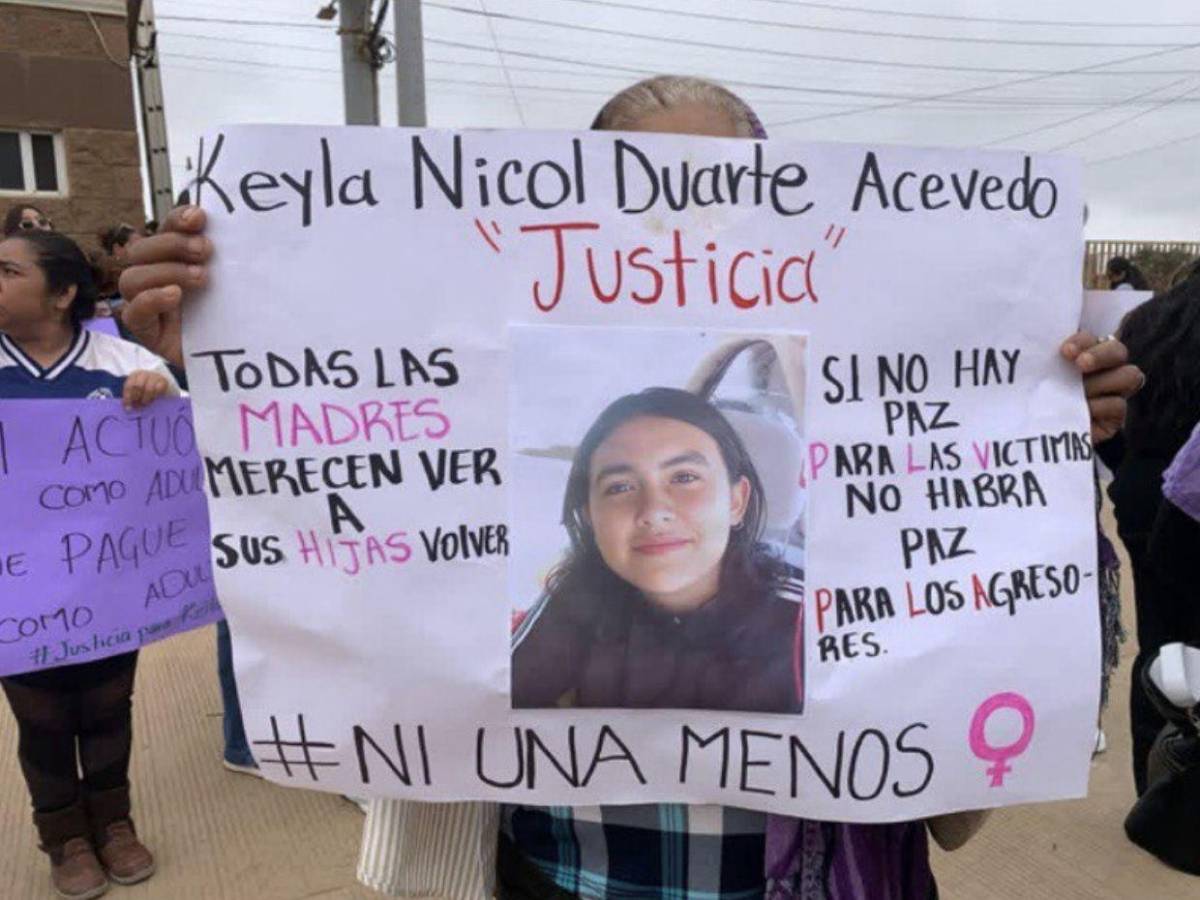 Keyla Nicol Duarte Acevedo
"Justicia"
TODAS LAS
MADRES
MERECEN VER
A
SUS HIJAS VOLVER
SI NO HAY
PAZ
PARA LAS VICTIMAS
NO HABRA
PAZ
PARA LOS AGRESO-
RES.
#NI UNA MENOS
ACTUÓ
COMO
PAGUE
COMO
#Justicia para